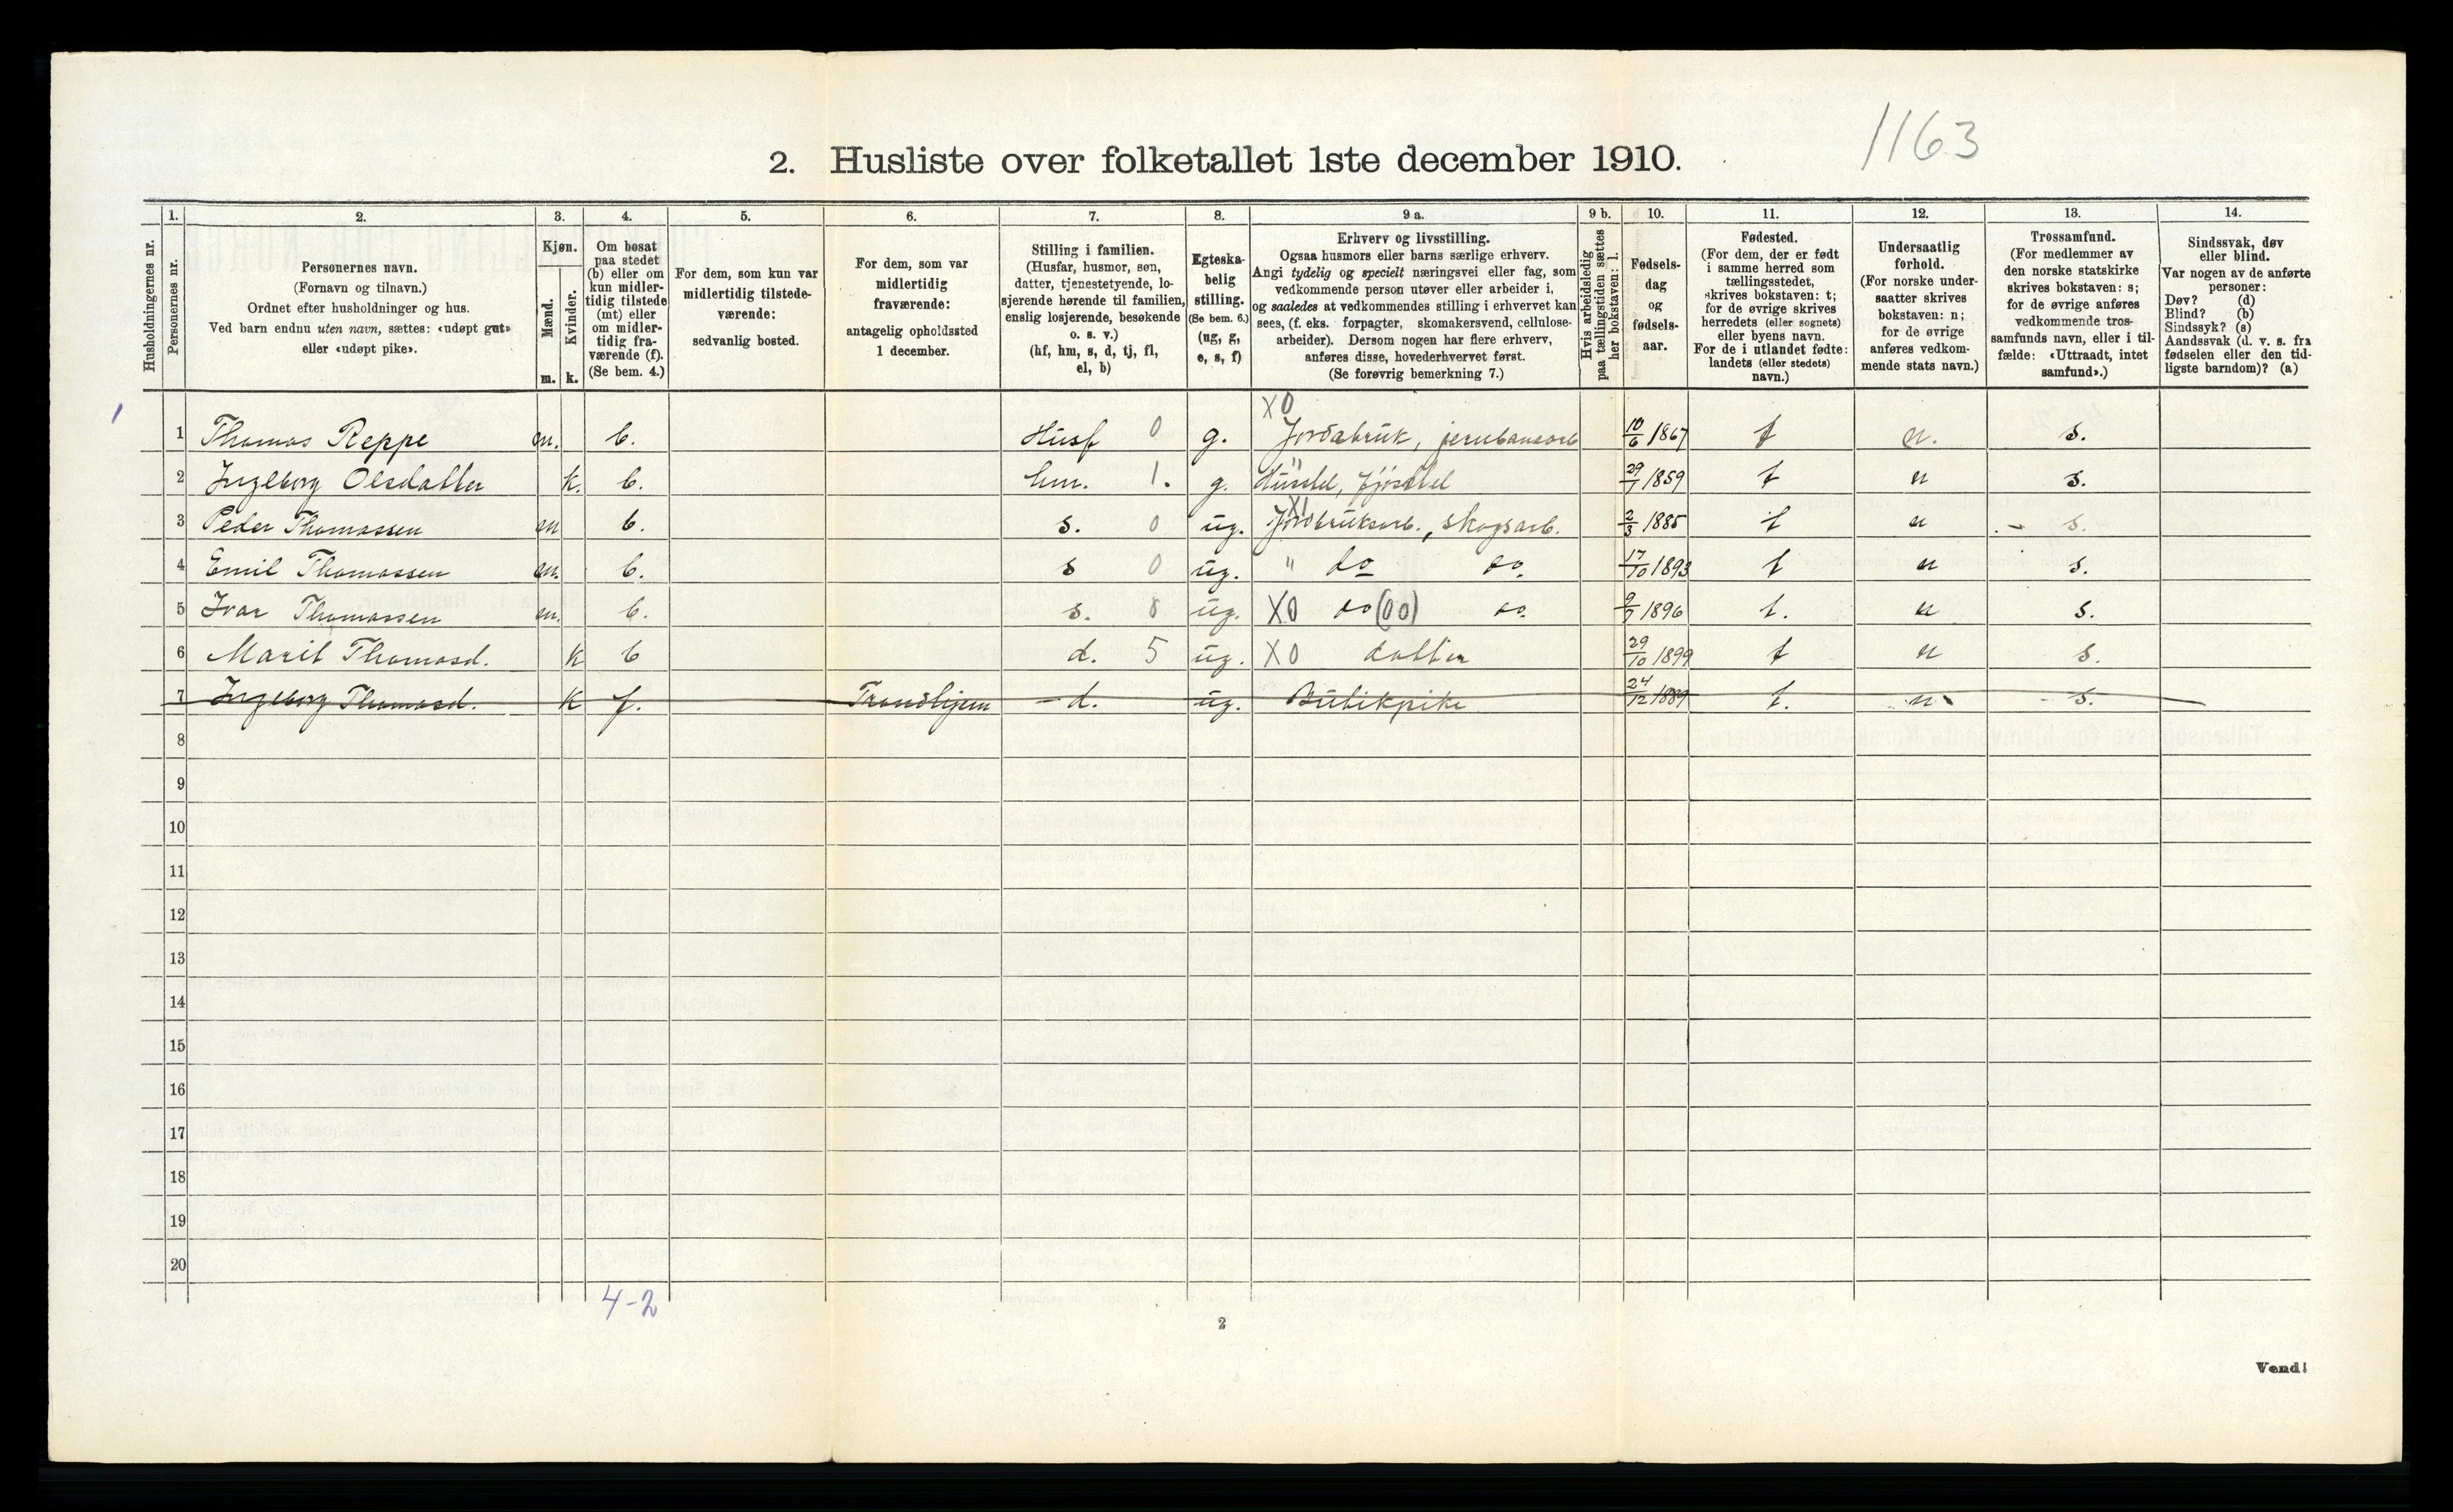 1163
2. Husliste over folketallet 1ste december 1910.
Husholdningernes nr.
1.
Personernes nr.
2.
Personernes navn.
(Fornavn og tilnavn.)
Ordnet efter husholdninger og hus.
Ved barn endnu uten navn, sættes: «udøpt gut»
eller «udøpt pike».
3.
Kjøn.
Mænd.
Kvinder.
m. k.
4.
Om bosat
paa stedet
(b) eller om
kun midler-
tidig tilstede
(mt) eller
om midler-
tidig fra-
værende (f).
(Se bem. 4.)
5.
For dem, som kun var
midlertidig tilstede-
værende:
sedvanlig bosted.
6.
For dem, som var
midlertidig
fraværende:
antagelig opholdssted
1 december.
7.
Stilling i familien.
(Husfar, husmor, søn,
datter, tjenestetyende, lo-
sjerende hørende til familien,
enslig losjerende, besøkende
o. s. v.)
(hf, hm, s, d, tj, fl,
el, b)
8.
Egteska-
belig
stilling.
(Se bem. 6.)
(ug, g,
e, s, f)
9 a.
Erhverv og livsstilling.
Ogsaa husmors eller barns særlige erhverv.
Angi tydelig og specielt næringsvei eller fag, som
vedkommende person utøver eller arbeider i,
og saaledes at vedkommendes stilling i erhvervet kan
sees, (f. eks. forpagter, skomakersvend, cellulose-
arbeider). Dersom nogen har flere erhverv,
anføres disse, hovederhvervet først.
(Se forøvrig bemerkning 7.)
9 b.
Hvis arbeidsledig
paa tællingstiden sættes
her bokstaven: l.
10.
Fødsels-
dag
og
fødsels-
aar.
11.
Fødested.
(For dem, der er født
i samme herred som
tællingsstedet,
skrives bokstaven: t;
for de øvrige skrives
herredets (eller sognets)
eller byens navn.
For de i utlandet fødte:
landets (eller stedets)
navn.)
12.
Undersaatlig
forhold.
(For norske under-
saatter skrives
bokstaven: n;
for de øvrige
anføres vedkom-
mende stats navn.)
13.
Trossamfund.
(For medlemmer av
den norske statskirke
skrives bokstaven: s;
for de øvrige anføres
vedkommende tros-
samfunds navn, eller i til-
fælde: «Uttraadt, intet
samfund».)
14.
Sindssvak, døv
eller blind.
Var nogen av de anførte
personer:
Døv? (d)
Blind? (b)
Sindssyk? (s)
Aandssvak (d. v. s. fra
fødselen eller den tid-
ligste barndom)? (a)
1
X0
1 Thomas Reppe m. b. Husf 0 g. Jordabruk, jernbanearb 10/6 1867 t n. s.
2 Ingeborg Olsdatter k. b. hm. 1. g. Husstel, Fjøsstel 29/7 1859 t n s.
X1
3 Peder Thomassen m b. s. 0 ug. Jordbruksarb., skogsarb. 2/3 1885 t n - s.
4 Emil Thomassen m. b. s 0 ug. " do do 17/10 1893 t n s.
5 Ivar Thomassen m. b. s. 8 ug. X0 do (00) do 9/7 1896 t. n s.
6 Marit Thomasd. k b d. 5 ug. X0 datter 29/10 1899 t n s.
7 Ingeborg Thomasd. k f. Trondhjem - d. ug. Butikpike 24/12 1889 t. n s.
8
9
10
11
12
13
14
15
16
17
18
19
20
4-2
2
Vend!